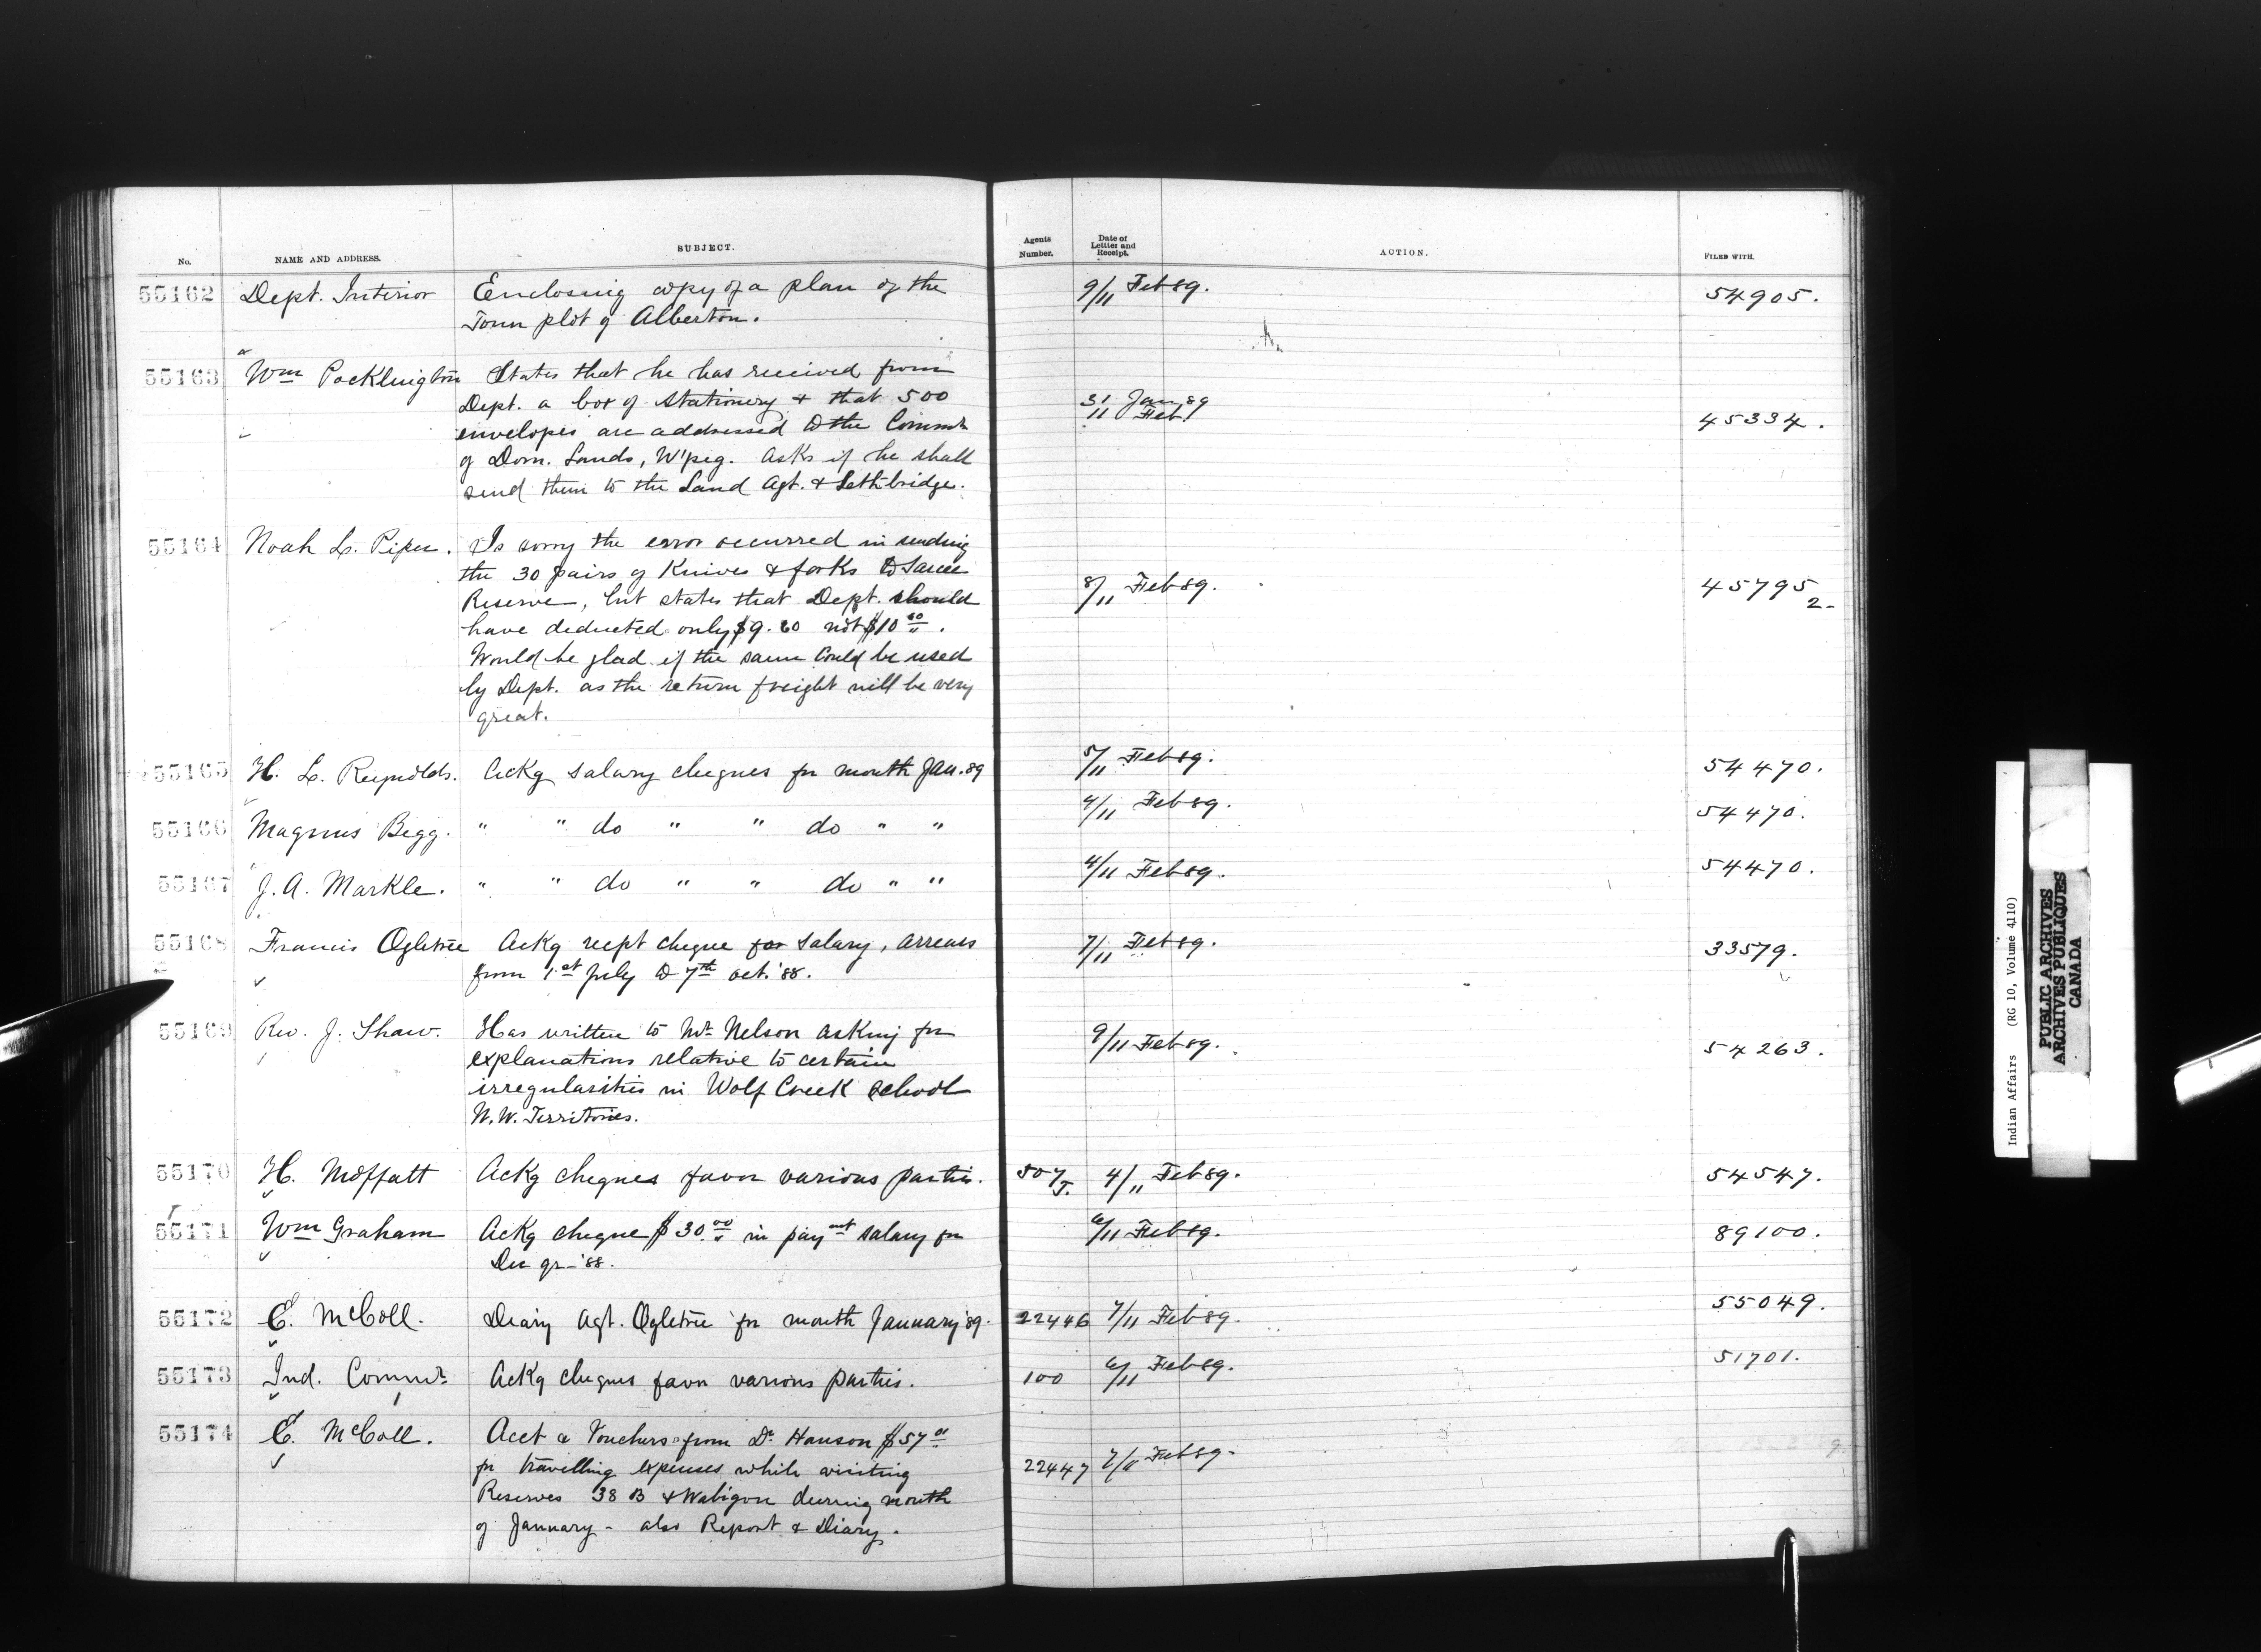 No. NAME AND ADDRESS. SUBJECT. Agents Number. Date of Letter and Receipt. ACTION. FILED WITH.
55162 Dept. Interior Enclosing copy of a plan of the 9/11 Feb 89. 54905.
Town plot of Alberton.
55163 Wm Pocklington States that he has received from
Dept. a box of stationery & that 500 31 Jan 89
envelopes are addressed to the Commr 11 Feb 45334.
of Dom. Lands, W'peg. Asks if he shall
send them to the Land Agt. & Lethbridge.
55164 Noah L. Piper. Is sorry the error occurred in sending
the 30 pairs of Knives & forks to Sarcee
Reserve, but states that Dept. should 8/11 Feb 89. 45795 2-
have deducted only $9.60 not $10 00.
Would be glad if the same could be used
by Dept. as the return freight will be very
great.
55165 H. L. Reynolds. Ackg salary cheques for month Jan. 89 5/11 Feb 89. 54470.
55166 Magnus Begg. " " do " " do " " 4/11 Feb 89. 54470.
55167 J. A. Markle. " " do " " do " " 4/11 Feb 89. 54470.
55168 Francis Ogletree Ackg recpt cheque for salary, arrears 7/11 Feb 89. 33579.
from 1st July to 7th Oct. '88.
55169 Rev. J. Shaw. Has written to Mr Nelson asking for 9/11 Feb 89. 54263.
explanations relative to certain
irregularities in Wolf Creek School
N.W. Territories.
55170 H. Moffatt Ackg cheques favor various parties. 507/J. 4/11 Feb 89. 54547.
55171 Wm Graham Ackg cheque $30 00 in paymt salary for 6/11 Feb 89. 89100.
Dec qr - '88.
55172 E. McColl. Diary Agt. Ogletree for month January '89. 22446 7/11 Feb 89. 55049.
55173 Ind. Commr Ackg cheques favor various parties. 100 6/11 Feb 89. 51701.
55174 E. McColl. Acct & Vouchers from Dr Hanson $57
for travelling expenses while visiting 22447 7/11 Feb 89.
Reserves 38 B & Wabigon during month
of January - also Report & Diary.
Indian Affairs (RG 10, Volume 4110)
PUBLIC ARCHIVES
ARCHIVES PUBLIQUES
CANADA